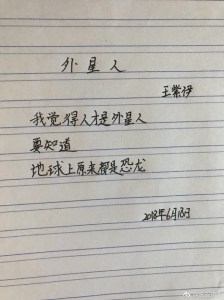 外星人
王紫伊
我觉得人才是外星人
要知道
地球上原来都是恐龙
2018年6月18日